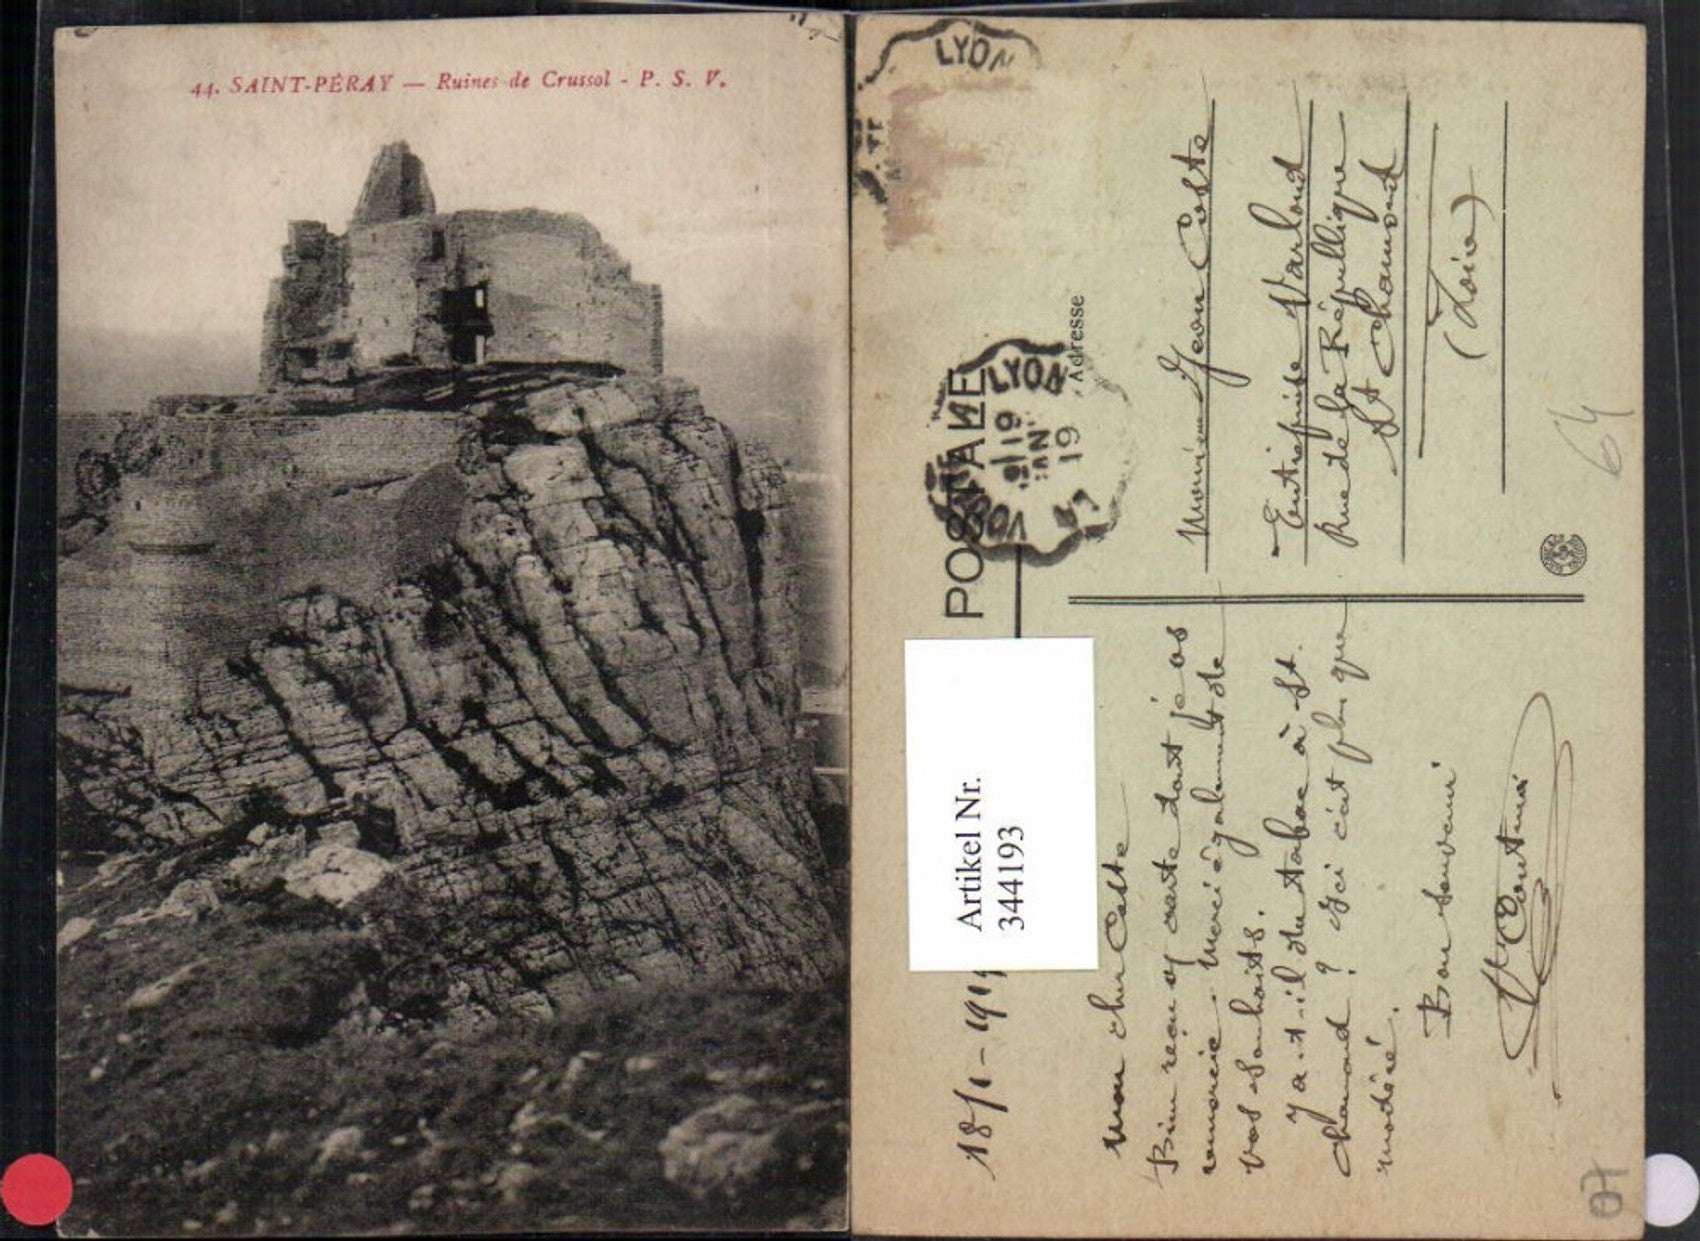 44. SAINT-PÉRAY — Ruines de Crussol - P. S. V.
LYON
POSTALE
LYON
19
19
Adresse
Artikel Nr.
344193
18/1-1919
Monsieur Jean Coste
Entreprise
Rue de la République
St Chamond
(Loire)
Mon cher Coste
Bien reçu ta carte dont je
remercie. Merci également de
vos souhaits.
Y a-t-il du tabac à St.
Chamond ? Ici c'est plus que
modéré.
Bon souvenir
64
07